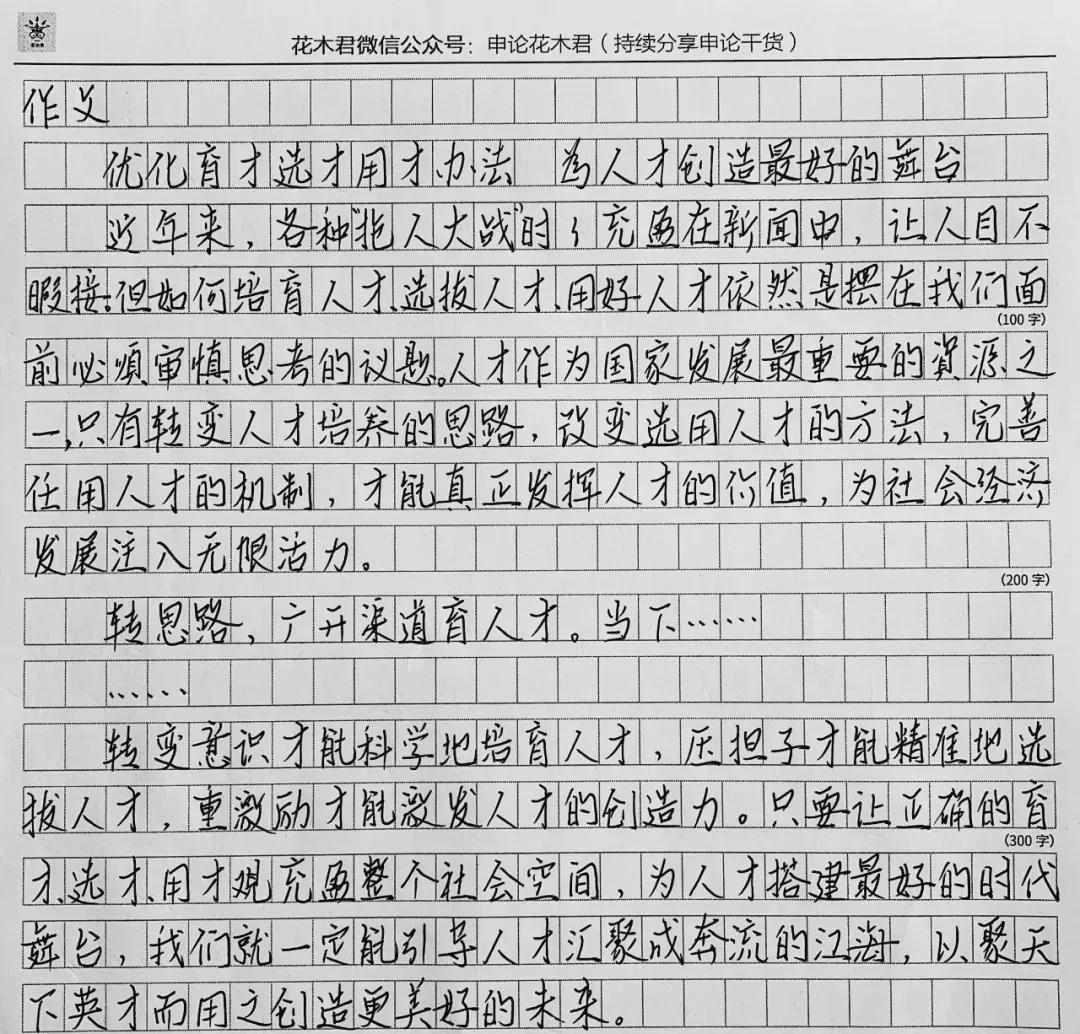 花木君微信公众号：申论花木君（持续分享申论干货）
作文
优化育才选才用才办法 为人才创造最好的舞台
近年来，各种"抢人大战"时时充盈在新闻中，让人目不
暇接；但如何培育人才、选拔人才、用好人才依然是摆在我们面
(100字)
前必须审慎思考的议题。人才作为国家发展最重要的资源之
一，只有转变人才培养的思路，改变选用人才的方法，完善
任用人才的机制，才能真正发挥人才的价值，为社会经济
发展注入无限活力。
(200字)
转思路，广开渠道育人才。当下……
……
转变意识才能科学地培育人才，压担子才能精准地选
拔人才，重激励才能激发人才的创造力。只要让正确的育
(300字)
才、选才、用才观充盈整个社会空间，为人才搭建最好的时代
舞台，我们就一定能引导人才汇聚成奔流的江海，以聚天
下英才而用之创造更美好的未来。